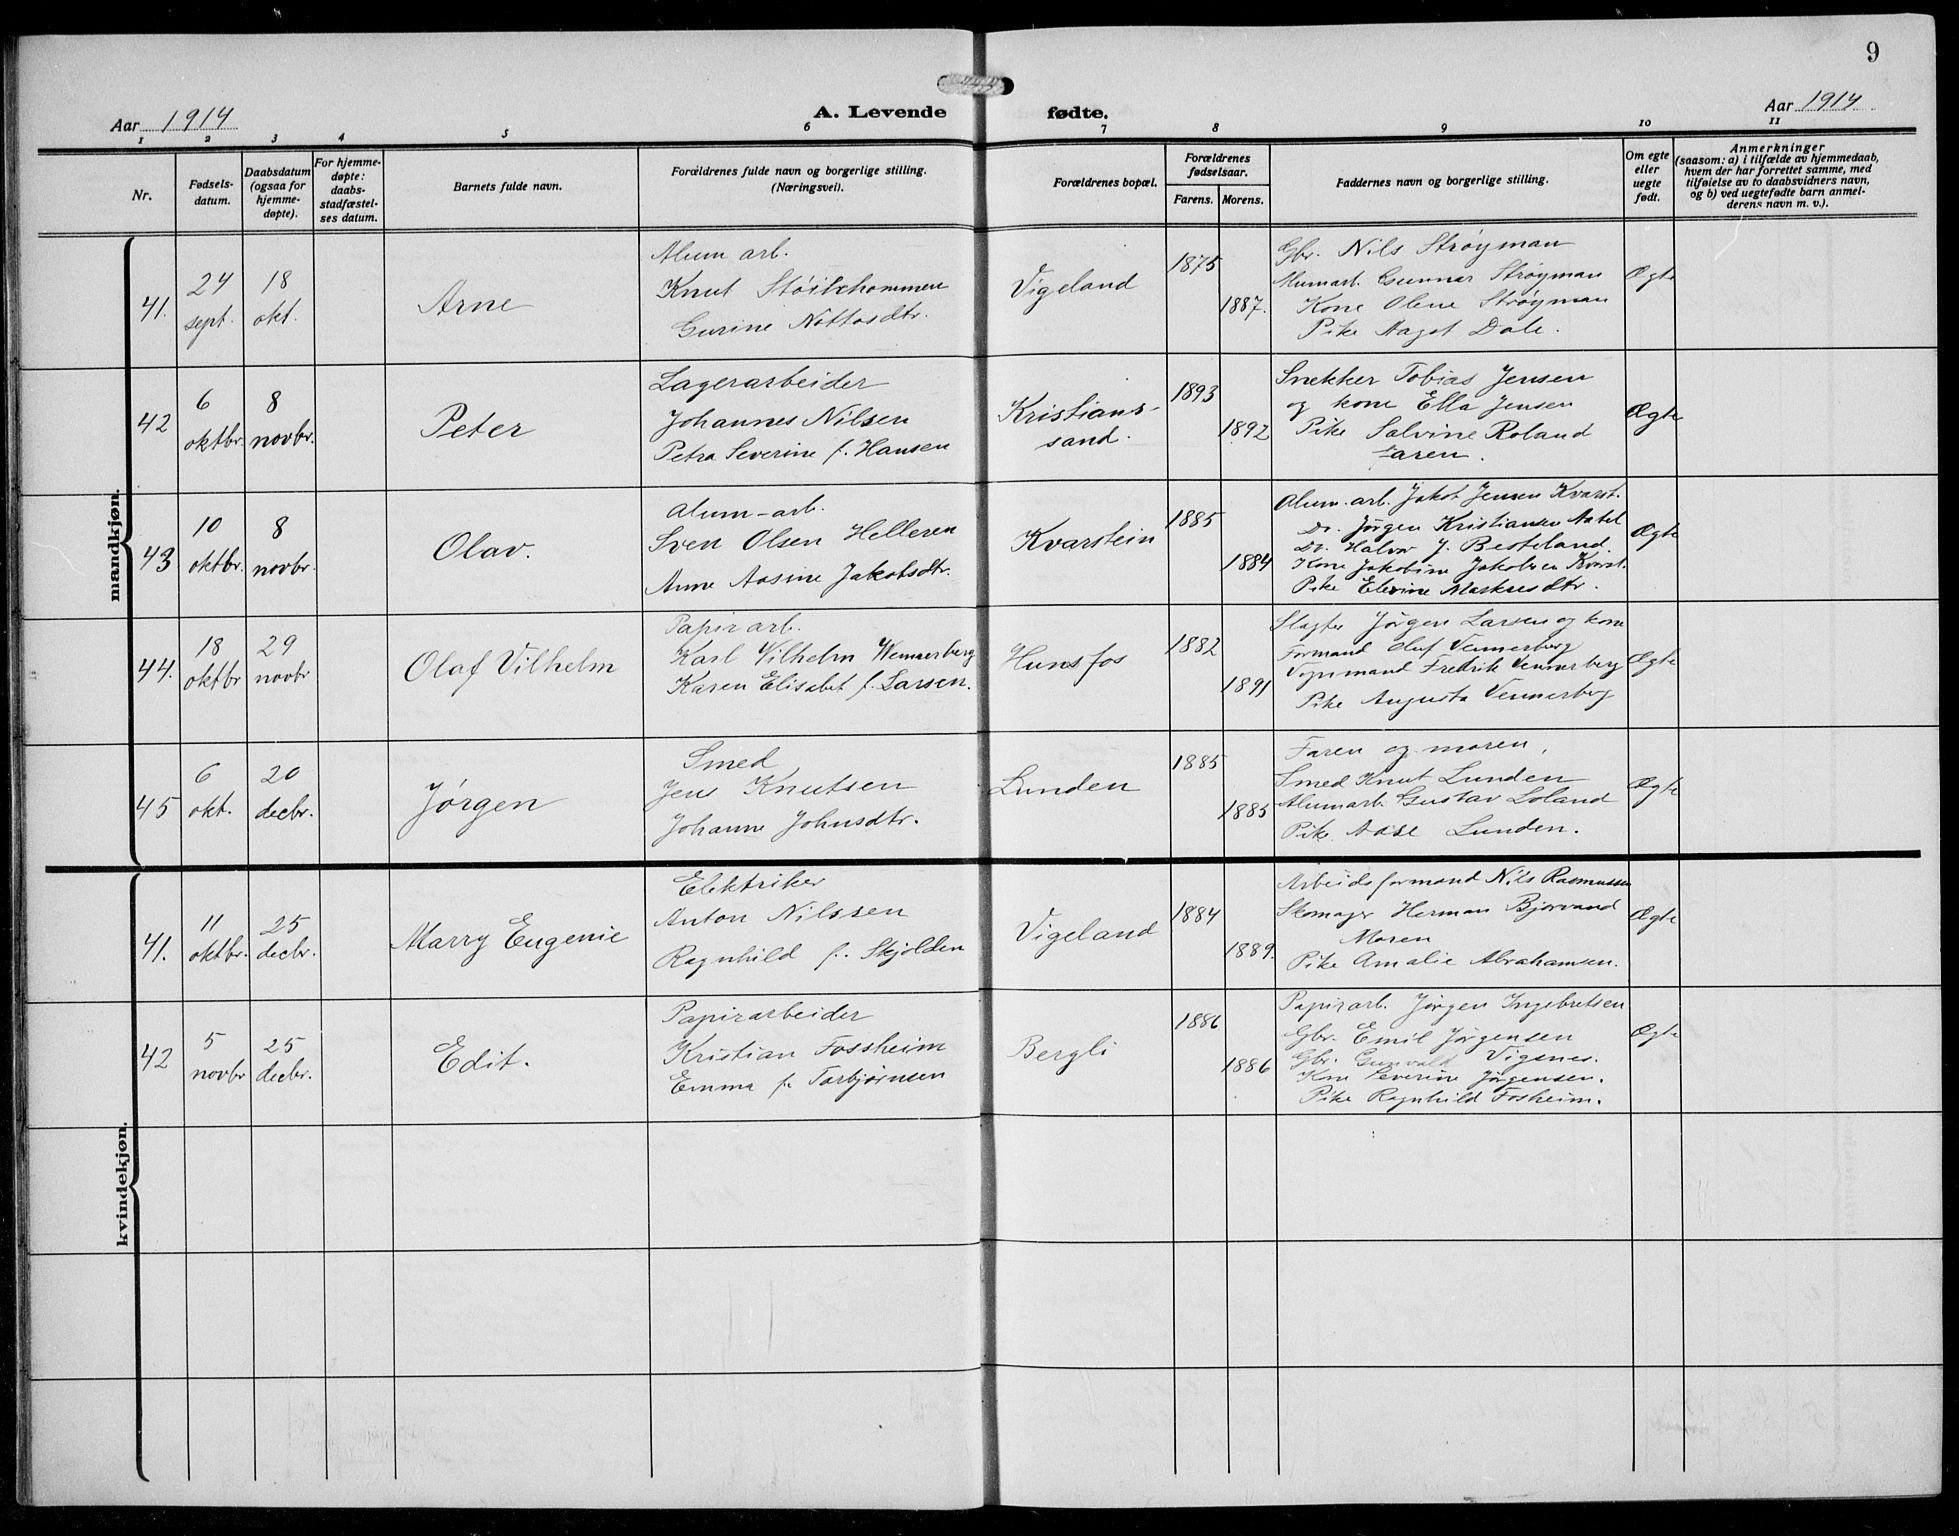 9
Aar 1914
A. Levende fødte.
Aar 1914.
1 2 3 4 5 6 7 8 9 10 11
Nr.
Fødsels-
datum.
Daabsdatum
(ogsaa for
hjemme-
døpte).
For hjemme-
døpte:
daabs-
stadfæstel-
ses datum.
Barnets fulde navn.
Forældrenes fulde navn og borgerlige stilling.
(Næringsvei).
Forældrenes bopæl.
Forældrenes
fødselsaar.
Farens. Morens.
Faddernes navn og borgerlige stilling.
Om egte
eller
uegte
født.
Anmerkninger
(saasom: a) i tilfælde av hjemmedaab,
hvem der har forrettet samme, med
tilføielse av to daabsvidners navn,
og b) ved uegtefødte barn anmel-
derens navn m. v.).
mandkjøn.
41.
24
sept.
18
okt.
Arne
Alum arb.
Knut
Gurine
Vigeland
1875
1887.
Gbr. Nils Strøyman
Alumarb. Gunnar Strøyman
Kone Olene Strøyman
Pike Aagot Dale.
Ægte
42
6
oktbr.
8
novbr.
Peter
Lagerarbeider
Johannes Nilsen
Petra Severine f. Hansen
Kristians-
sand.
1893
1892
Snekker Tobias Jensen
og kone Ella Jensen
Pike Salvine Roland
Faren.
Ægte
43
10
oktbr.
8
novbr.
Olav.
Alum-arb.
Sven Olsen Helleren
Anne Aasine Jakobsdtr.
Kvarstein
1885
1884
Alum.arb. Jakob Jensen Kvarst.
Do. Jørgen Kristiansen
Do. Halvor J. Besteland.
Kone Jakobine Jakobsen Kvarst.
Pike Elevine Markusdtr.
Ægte
44.
18
oktbr
29
novbr
Olaf Vilhelm
Papirarb.
Karl Vilhelm Wennerberg
Karen Elisabet f. Larsen.
Hunsfos
1882
1891
Slagter Jørgen Larsen og kone
Formand Oluf Vennerberg
Vognmand Fredrik Vennerberg
Pike Augusta Vennerberg
Ægte
45
6
okt.
20
decbr.
Jørgen
Smed
Jens Knutsen
Johanne Johnsdtr.
Lunden
1885
1885
Faren og moren,
Smed Knut Lunden
Alumarb. Gustav Loland
Pike Aase Lunden.
Ægte
kvindekjøn.
41.
11
oktbr.
25
decbr.
Marry Eugenie
Elektriker
Anton Nilssen
Ragnhild f. Skjolden
Vigeland
1884
1889.
Arbeidsformand Nils Rasmussen
Skomager Herman Bjorvand
Moren
Pike Amalie Abrahamsen.
Ægte
42
5
novbr
25
decbr.
Edit.
Papirarbeider
Kristian Fossheim
Emma f. Torbjørnsen
Bergli
1886
1886
Papirarb. Jørgen Ingebretsen
Gbr. Emil Jørgensen
Gbr. Gunvald Vigenes.
Kone Severine Jørgensen.
Pike Ragnhild Fosheim.
Ægte